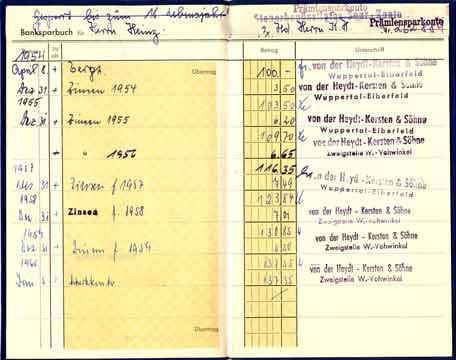 Gesperrt bis zum 16. Lebensjahr Prämiensparkonto
Banksparbuch für Herrn Heinz z. Hd. Herrn K. H. Prämiensparkonto
Nr.
1954 Zu ab Betrag Unterschrift
April 8. + Übertrag 100.- von der Heydt-Kersten & Söhne
Wuppertal-Elberfeld
Dez 31 + Zinsen 1954 3,50
1955 103,50 von der Heydt-Kersten & Söhne
Wuppertal-Elberfeld
Dez. 31. + Zinsen 1955 6,20 von der Heydt-Kersten & Söhne
109,70 Wuppertal-Elberfeld
+ " 1956 6.65 von der Heydt-Kersten & Söhne
1957 116,35 Zweigstelle W.-Vohwinkel
Dez 31 + Zinsen f 1957 7,49 von der Heydt-Kersten & Söhne
1958 123,84 Wuppertal-Elberfeld
Dez 31 + Zinsen f. 1958 7,01 von der Heydt - Kersten & Söhne
1959 Zweigstelle W.-Vohwinkel
Dez 31 + Zinsen f 1959 von der Heydt - Kersten & Söhne
1960 137,35 Zweigstelle W.-Vohwinkel
137,35 von der Heydt - Kersten & Söhne
Zweigstelle W.-Vohwinkel
Übertrag